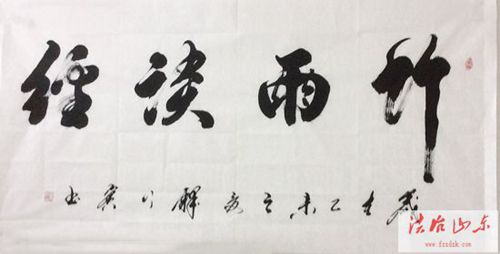 竹雨談經
歲在乙未之夏解
法治山东
www.fzsdzk.com